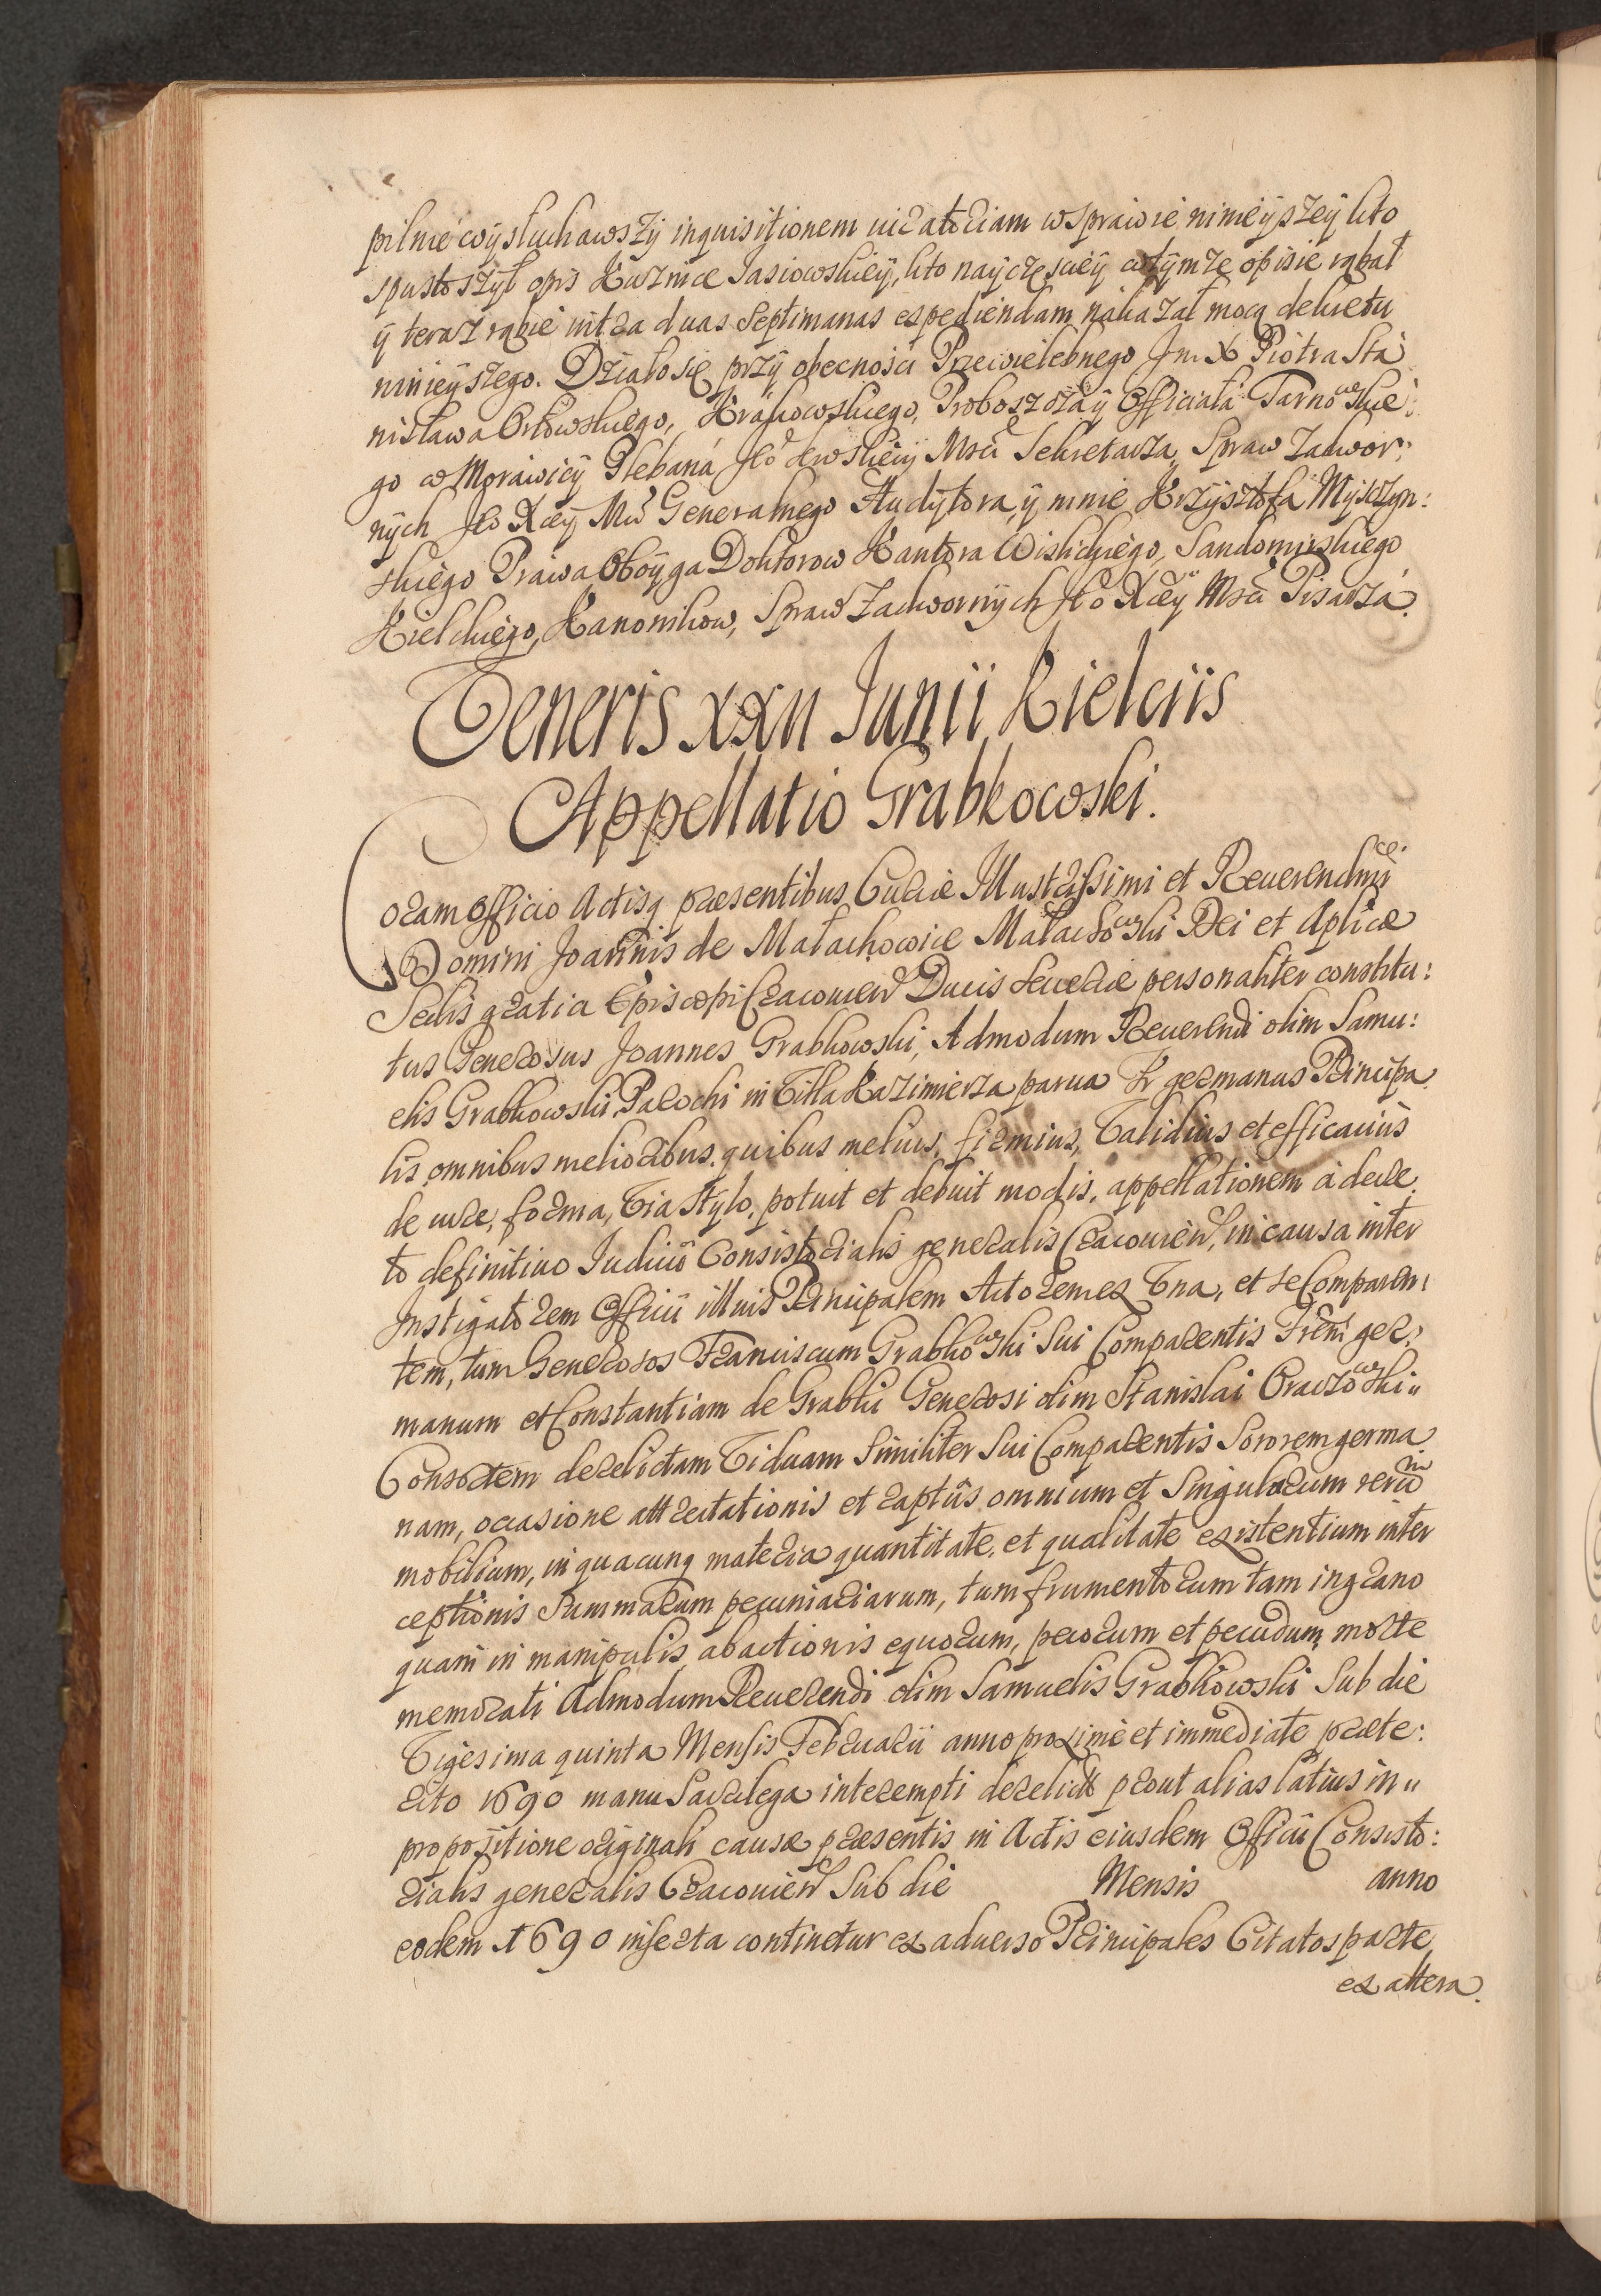 pilnie wysłuchawszy inquisitionem iuratoriam w sprawie ninieyszey kto
spustoszył opis Kuznice Jasiowskiey, kto nayczęsciey w tymze opisie rąbał
y teraz rąbie intra duas septimanas expediendam nakazał mocą dekretu
ninieyszego. Działo się przy obecności Przewielebnego Jm X Piotra Sta
nisława Orłowskiego, Krakowskiego, Proboszcza y Officiała Tarnowskie:
go w Morawicy Plebana Mści Sekretarza, Spraw Zadwor:
nych Jeo Xcey Mci Generalnego Audytora, y mnie Krzysztofa Myszyn:
skiego Prawa Oboyga Doktorow Kantora Wislickiego, Sandomirskiego
Kielckiego, Kanonikow, Spraw Zadwornych Jeo Xcey Mści Pisarza.
Veneris XXII Junii Kielciis
Appellatio Grabkowski.
Coram Officio Actisq praesentibus Curiae Illustrissimi et Reverendmi
Domini Joannis de Małachowice Małachowski Dei et Aplicae
Sedis gratia Episcopi Cracovien Ducis Severiae personaliter constitu:
tus Generosus Joannes Grabkowski, Admodum Reverendi olim Samu:
elis Grabkowski, Parochi in Villa Kazimierza parua Fr germanus Principa
lis omnibus melioribus quibus melius, firmius, Validius et efficacius
de iure, forma, Via Stylo, potuit et debuit modis, appellationem à decre
to definitiuo Judicii Consistorialis generalis Cracouien, in causa inter
Instigatorem Officii illius Principalem Actorem ex Vna, et se Comparen:
tem, tum Generosos Franciscum Grabkowski sui Comparentis Frem ger:
manum et Constantiam de Grabki Generosi olim Stanislai Oraczowski"
Consortem derelictam Viduam similiter sui Comparentis Sororem germa
nam, occasione attrectationis et raptus omnium et singularum rerum
mobilium, in quacunq materia quantitate, et qualitate existentium inter
ceptionis summarum pecuniariarum, tum frumentorum tam in grano
quam in manipulis, abactionis equorum, pecorum et pecudum, morte
memorati Admodum Reuerendi olim Samuelis Grabkowski sub die
Vigesima quinta Mensis Februarii anno proximè et immediate praete:
rito 1690 manu Sacrilega interempti derelict prout alias latius in"
propositione originali causae praesentis in Actis eiusdem Officii Consisto:
rialis generalis Cracouien Sub die Mensis anno
eodem 1690 inserta continetur ex aduerso Principales Citatos parte
ex altera.